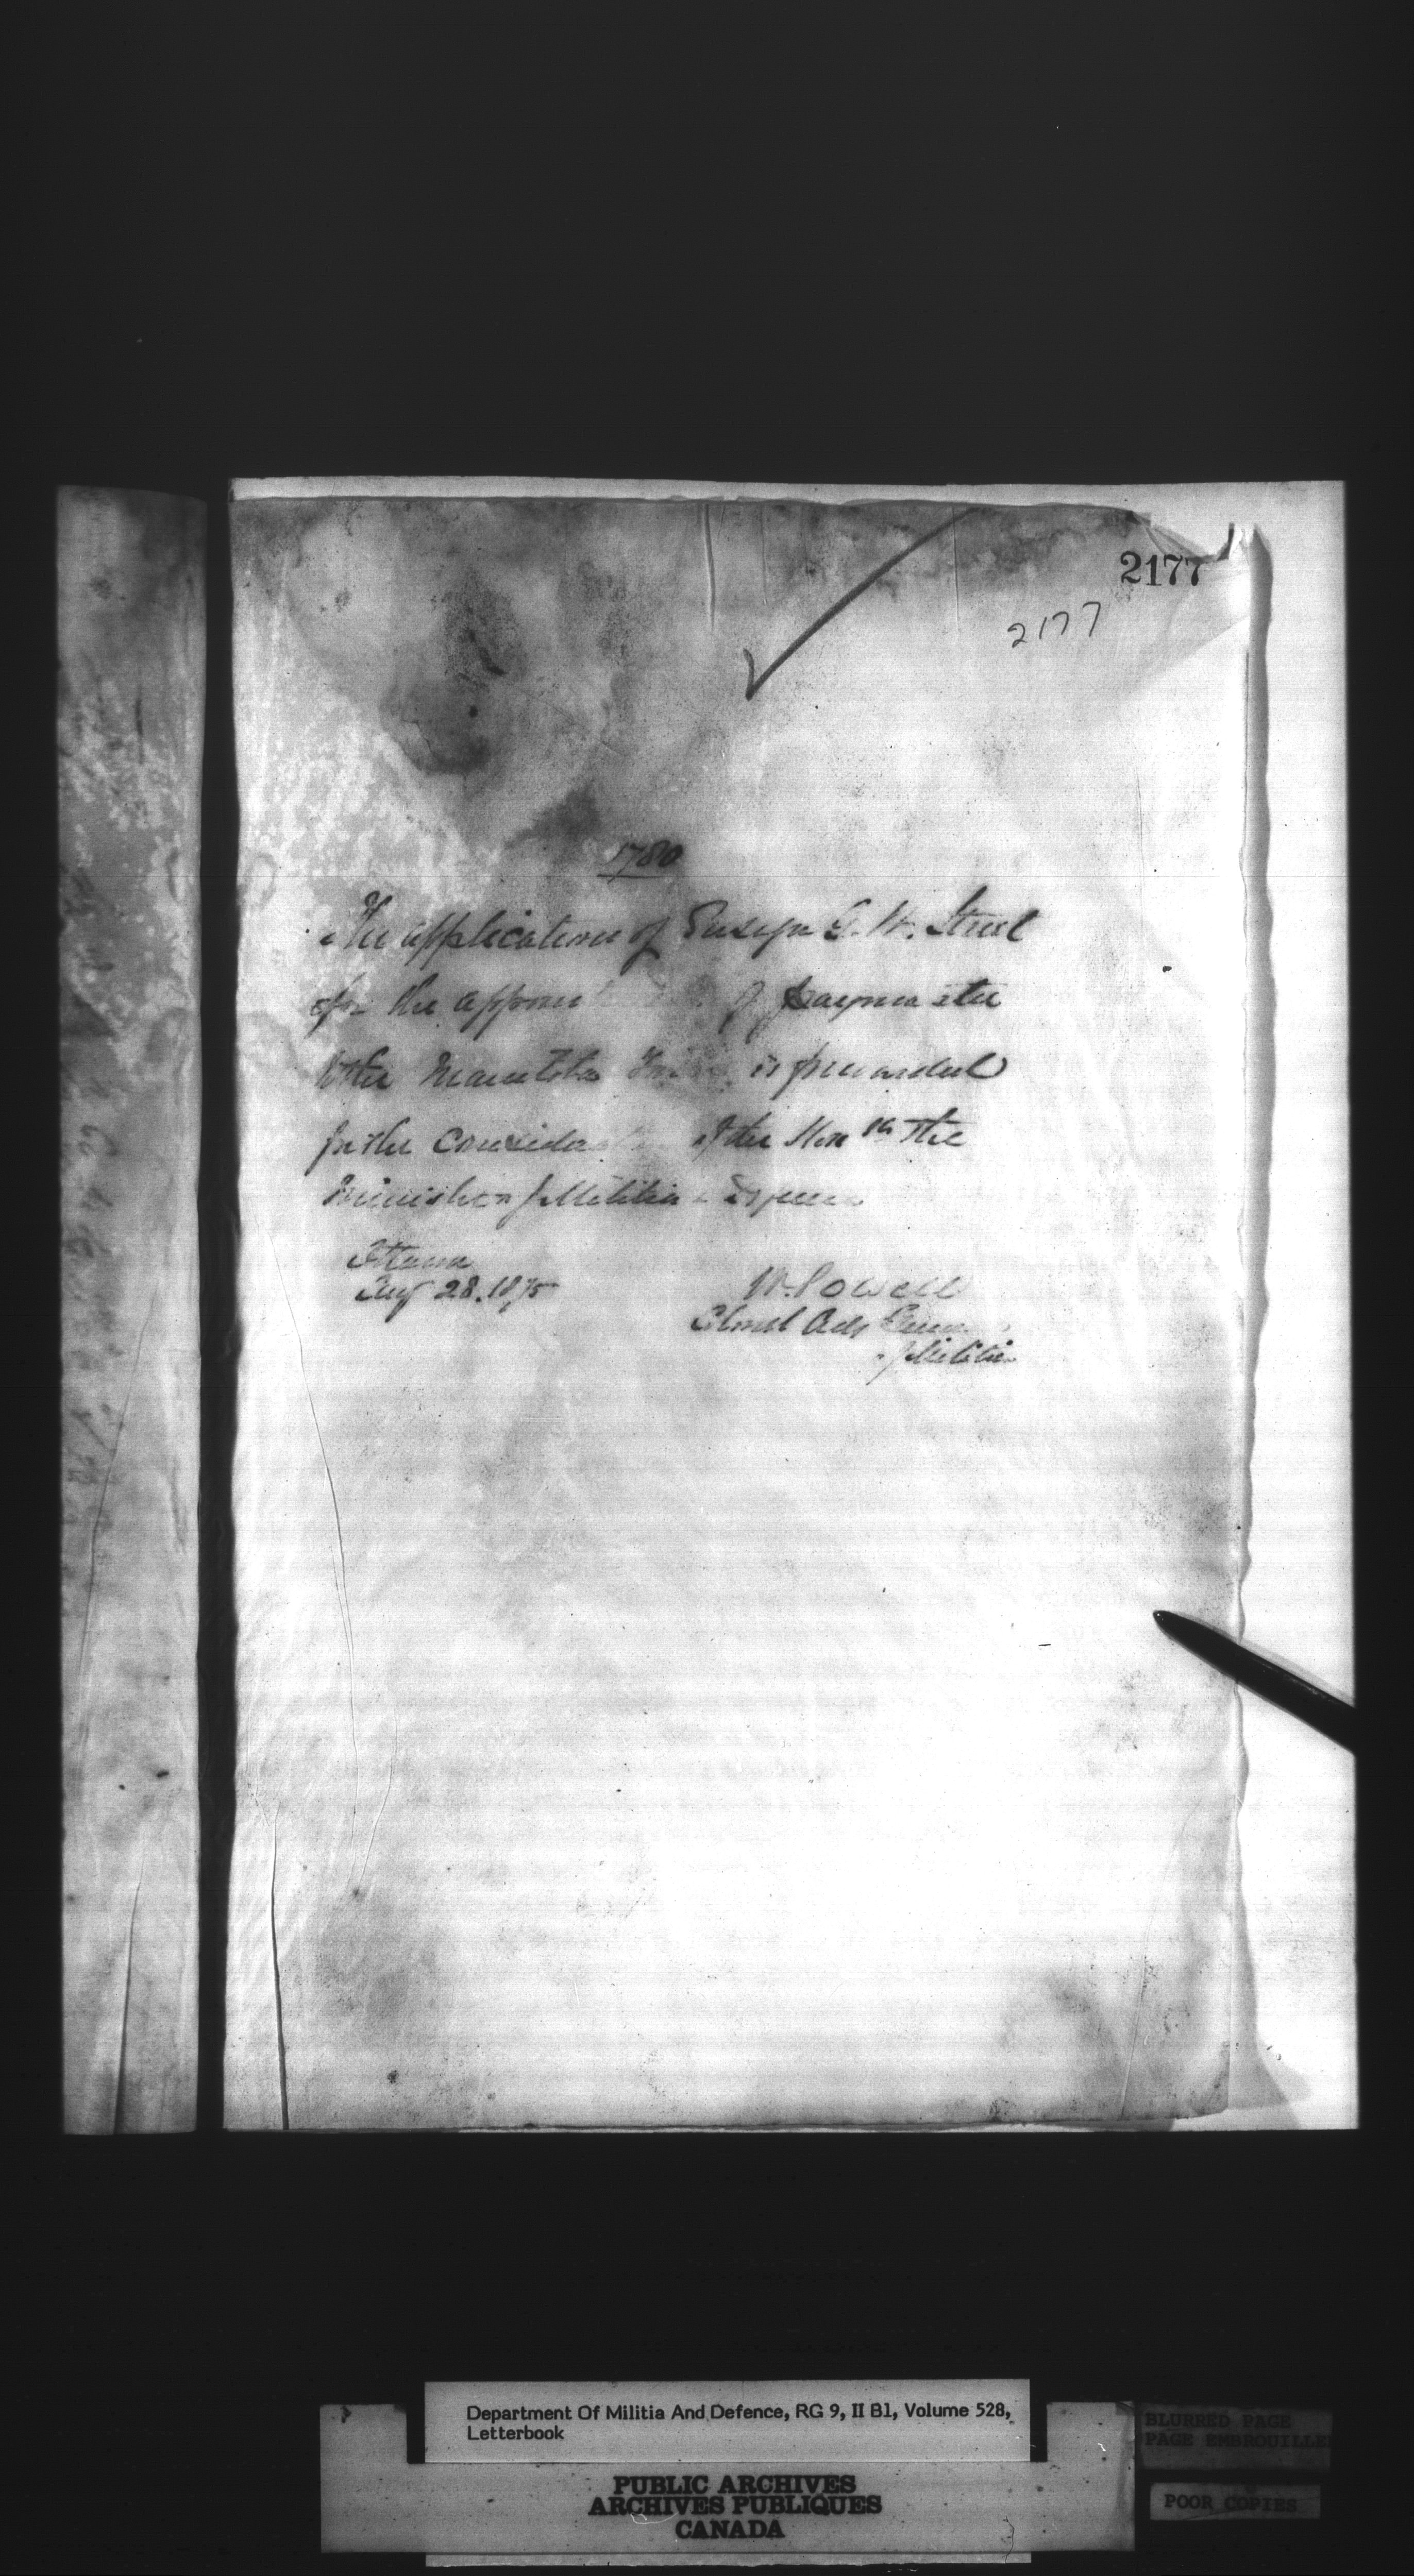 2177
2177
1780
The application of Ensign G. W. Street
for the appoint of paymaster
to the Manitoba is forwarded
for the considera of the Honble The
Minister of Militia &
Ottawa
Aug 28. 1875
W. Powell
Colonel Adj
of Militia
Department Of Militia And Defence, RG 9, II B1, Volume 528,
Letterbook
PUBLIC ARCHIVES
ARCHIVES PUBLIQUES
CANADA
BLURRED PAGE
PAGE EMBROUILLE
POOR COPIES